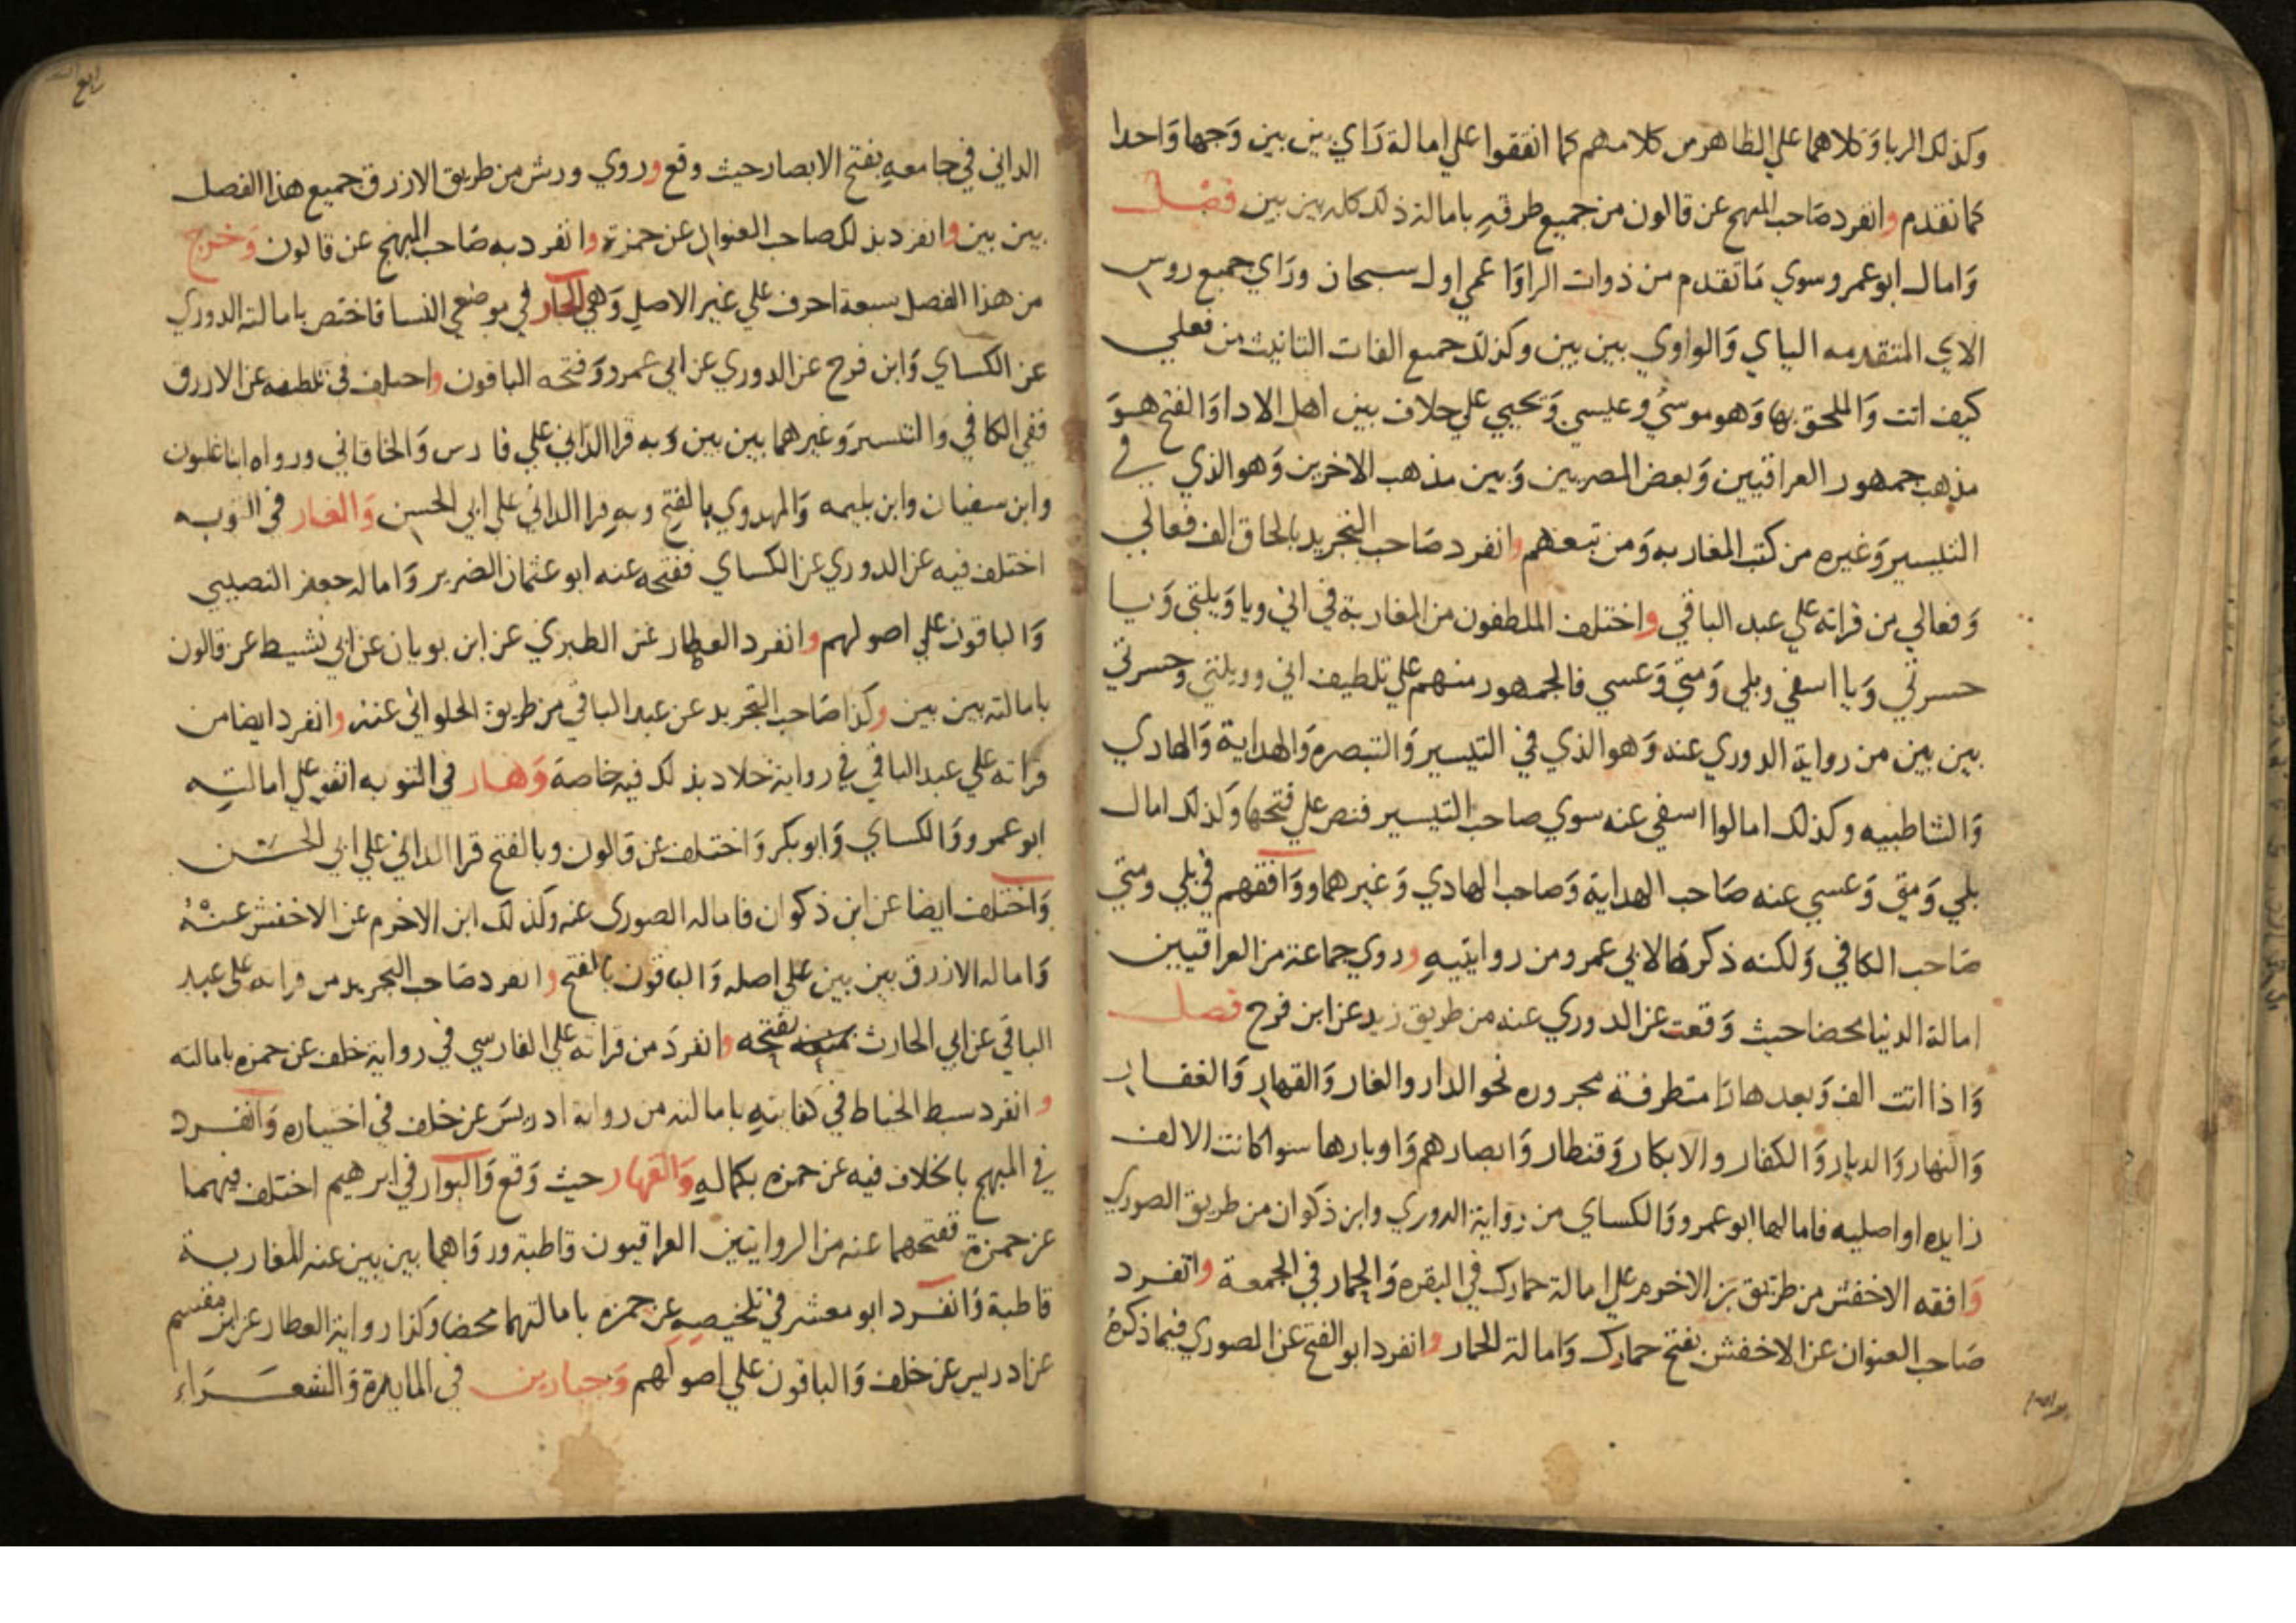 وكذلك الربا وكلاهما علي الظاهر من كلامهم كما اتفقوا علي امالة راي بين بين وجها واحدا
كما تقدم وانفرد صاحب المبهج عن قالون من جميع طرقه بامالة ذلك كله بين بين فصل
وامال ابو عمرو سوي ما تقدم من ذوات الرا واعمي اول سبحان وراي جميع روس
الاي المتقدمه اليأي والواوي بين بين وكذلك جميع الفات التانيث من فعلي
كيف اتت والملحق بها وهو موسي وعيسي ويحيي علي خلاف بين اهل الادا والفتح هو
مذهب جمهور العراقيين وبعض المصريين وبين مذهب الاخرين وهو الذي في
التيسير وغيره من كتب المغاربه ومن تبعهم وانفرد صاحب التجريد بالحاق الف فعالي
وفعالي من قراته علي عبد الباقي واختلف الملطفون من المغاربة في اني ويا ويلتي ويا
حسرتي ويا اسفي وبلي ومتي وعسي فالجمهور منهم علي تلطيف اني وويلتي وحسرتي
بين بين من رواية الدوري عنه وهو الذي في التيسير والتبصره والهداية والهادي
والشاطبيه وكذلك امالوا اسفي عنه سوي صاحب التيسير فنص علي فتحها وكذلك امال
بلي ومتي وعسي عنه صاحب الهداية وصاحب الهادي وغيرهما ووافقهم في بلي ومتي
صاحب الكافي ولكنه ذكرها لابي عمرو من روايتيه وروي جماعة من العراقيين
امالة الدنيا محضا حيث وقعت عن الدوري عنه من طريق زيد عن ابن فرح فصل
واذا اتت الف وبعدها را متطرفة مجروره نحو الدار والغار والقهار والغفار
والنهار والديار والكفار والابكار وقنطار وابصارهم واوبارها سوا كانت الالف
زايده او اصليه فامالها ابو عمرو والكساي من رواية الدوري وابن ذكوان من طريق الصوري
وافقه الاخفش من طريق بن الاخرم علي امالة حمارك في البقره والحمار في الجمعة وانفرد
صاحب العنوان عن الاخفش بفتح حمارك وامالة الحمار وانفرد ابو الفتح عن الصوري فيما ذكره
الداني في جامعه بفتح الابصار حيث وقع وروي ورش من طريق الازرق جميع هذا الفصل
بين بين وانفرد بذلك صاحب العنوان عن حمزة وانفرد به صاحب المبهج عن قالون وخرج
من هذا الفصل سبعة احرف علي غير الاصل وهي الجار في موضعي النسا فاختص بامالته الدوري
عن الكساي وابن فرح عن الدوري عن ابي عمرو وفتحه الباقون واختلف في تلطيفه عن الازرق
ففي الكافي والتيسير وغيرهما بين بين وبه قرا الداني علي فارس والخاقاني ورواه ابنا غلبون
وابن سفيان وابن بليمه والمهدوي بالفتح وبه قرا الداني علي ابي الحسن والغار في التوبه
اختلف فيه عن الدوري عن الكساي ففتحه عنه ابو عثمان الضرير واماله جعفر النصيبي
والباقون علي اصولهم وانفرد العطار عن الطبري عن ابن بويان عن ابي نشيط عن قالون
بامالته بين بين وكذا صاحب التجريد عن عبد الباقي من طريق الحلواني عنه وانفرد ايضا من
قراته علي عبد الباقي في رواية خلاد بذلك فيه خاصة وهار في التوبه اتفق علي امالته
ابو عمرو والكساي وابو بكر واختلف عن قالون وبالفتح قرا الداني علي ابي الحسن
واختلف ايضا عن ابن ذكوان فاماله الصوري عنه وكذلك ابن الاخرم عن الاخفش عنه
واماله الازرق بين بين علي اصله والباقون بالفتح وانفرد صاحب التجريد من قراته علي عبد
الباقي عن ابي الحارث بفتحه وانفرد من قراته علي الفارسي في رواية خلف عن حمزه بامالته
وانفرد سبط الخياط في كفايته بامالته من رواية ادريس عن خلف في اختياره وانفرد
في المبهج بالخلاف فيه عن حمزه بكماله والقهار حيث وقع والبوار في ابرهيم اختلف فيهما
عن حمزة ففتحهما عنه من الروايتين العراقيون قاطبة ورواهما بين بين عنه المغاربة
قاطبة وانفرد ابو معشر في تلخيصه عن حمزه بامالتهما محضا وكذا رواية العطار عن ابن مقسم
عن ادريس عن خلف والباقون علي اصولهم وجبارين في المايدة والشعراء